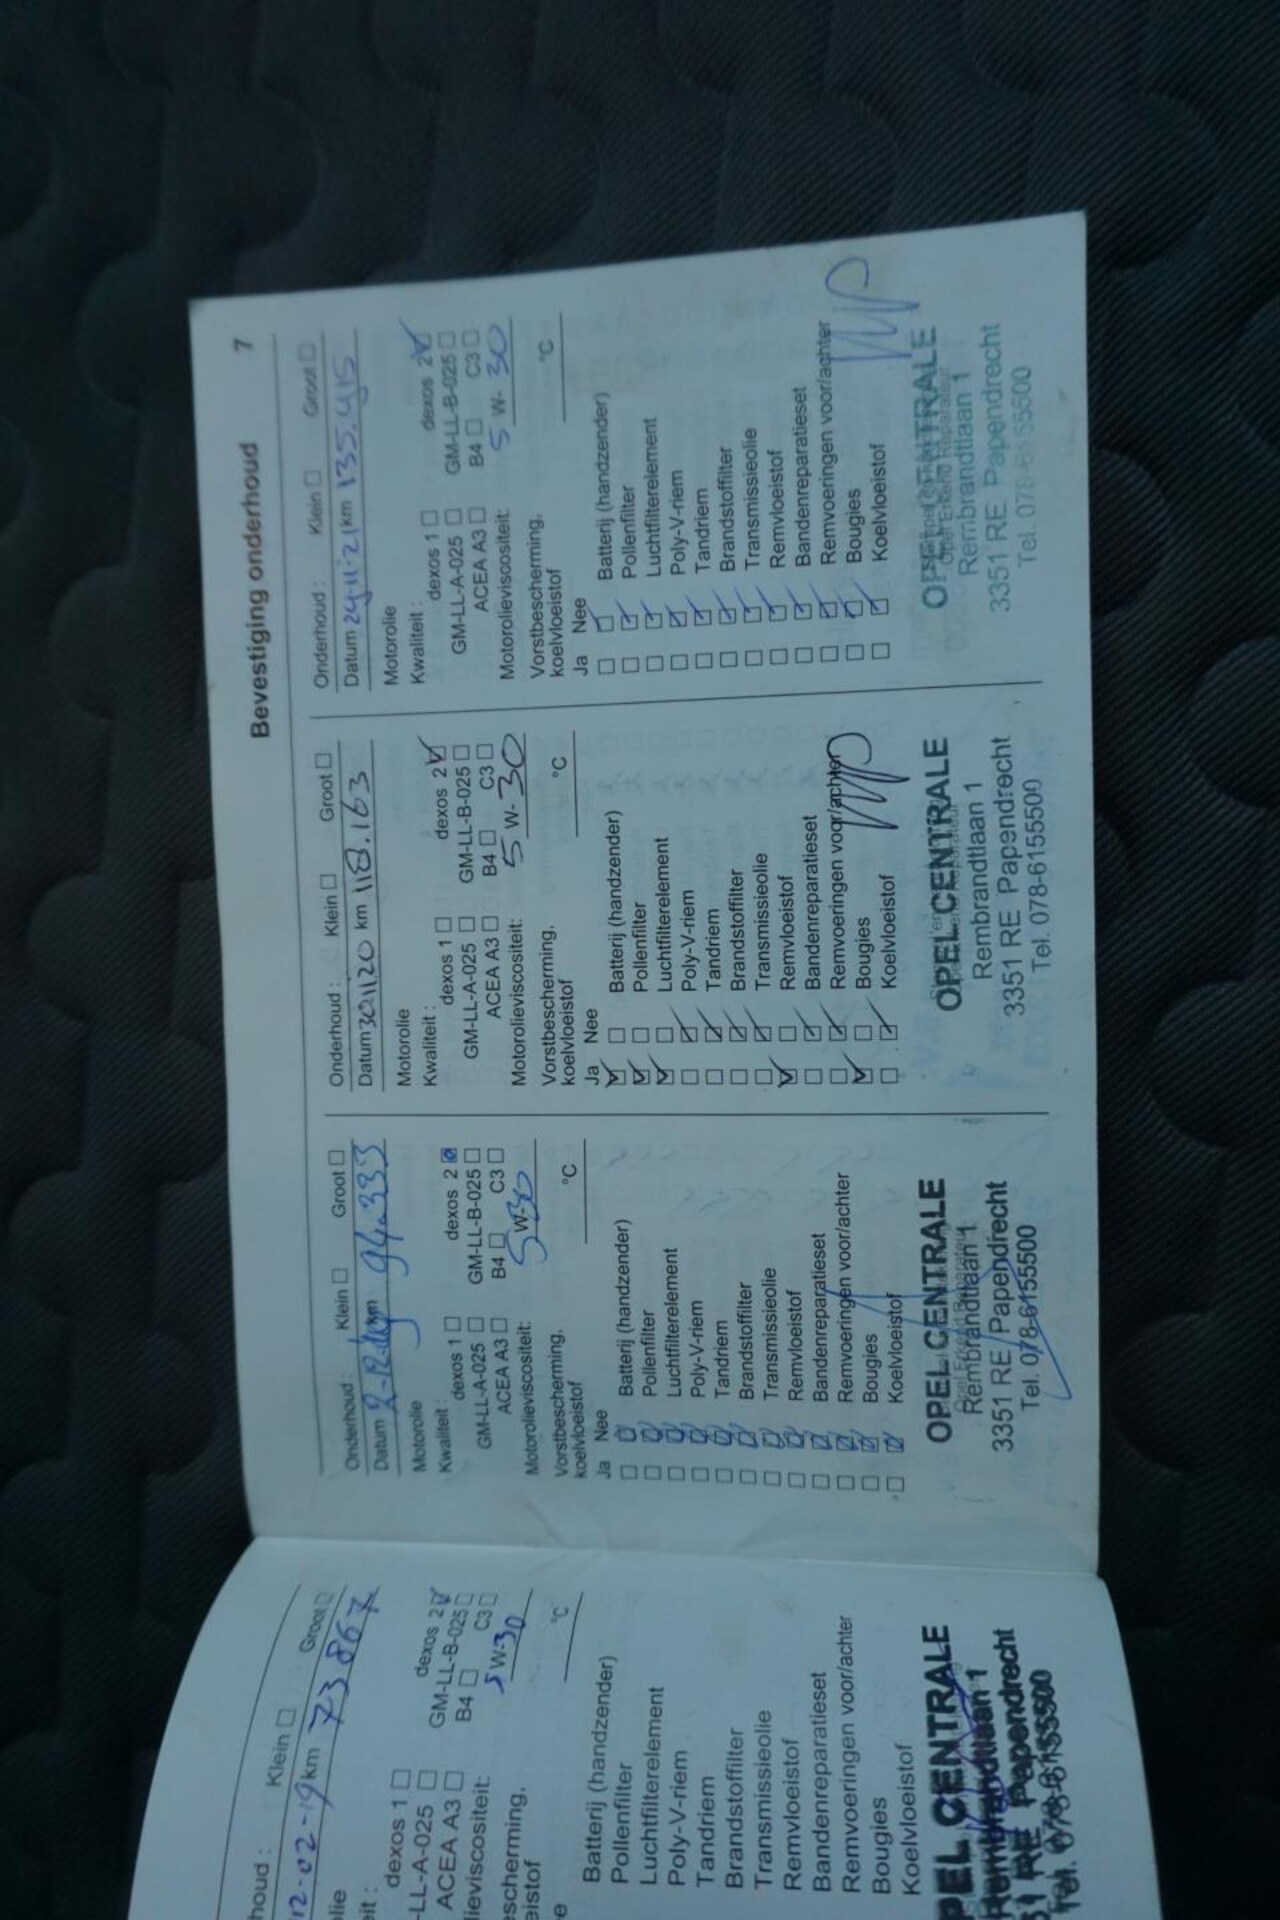 houd :
Klein
Groot
12-02-19 km 73867
lie
eit :
dexos 1
dexos 2
-LL-A-025
GM-LL-B-025
ACEA A3
B4
C3
lieviscositeit:
5 W-30
scherming,
eistof
°C
e
Batterij (handzender)
Pollenfilter
Luchtfilterelement
Poly-V-riem
Tandriem
Brandstoffilter
Transmissieolie
Remvloeistof
Bandenreparatieset
Remvoeringen voor/achter
Bougies
Koelvloeistof
PEL CENTRALE
Rembrandtlaan 1
51 RE Papendrecht
Tel. 078-6155500
Bevestiging onderhoud 7
Onderhoud :
Klein
Groot
Datum km 94.333
Motorolie
Kwaliteit :
dexos 1
dexos 2
GM-LL-A-025
GM-LL-B-025
ACEA A3
B4
C3
Motorolieviscositeit:
5 W-30
Vorstbescherming,
koelvloeistof
°C
Ja Nee
Batterij (handzender)
Pollenfilter
Luchtfilterelement
Poly-V-riem
Tandriem
Brandstoffilter
Transmissieolie
Remvloeistof
Bandenreparatieset
Remvoeringen voor/achter
Bougies
Koelvloeistof
OPEL CENTRALE
Rembrandtlaan 1
3351 RE Papendrecht
Tel. 078-6155500
Onderhoud :
Klein
Groot
Datum 301120 km 118.163
Motorolie
Kwaliteit :
dexos 1
dexos 2
GM-LL-A-025
GM-LL-B-025
ACEA A3
B4
C3
Motorolieviscositeit:
5 W-30
Vorstbescherming,
koelvloeistof
°C
Ja Nee
Batterij (handzender)
Pollenfilter
Luchtfilterelement
Poly-V-riem
Tandriem
Brandstoffilter
Transmissieolie
Remvloeistof
Bandenreparatieset
Remvoeringen voor/achter
Bougies
Koelvloeistof
OPEL CENTRALE
Rembrandtlaan 1
3351 RE Papendrecht
Tel. 078-6155500
Onderhoud :
Klein
Groot
Datum 24-11-21 km 135.415
Motorolie
Kwaliteit :
dexos 1
dexos 2
GM-LL-A-025
GM-LL-B-025
ACEA A3
B4
C3
Motorolieviscositeit:
5 W-30
Vorstbescherming,
koelvloeistof
°C
Ja Nee
Batterij (handzender)
Pollenfilter
Luchtfilterelement
Poly-V-riem
Tandriem
Brandstoffilter
Transmissieolie
Remvloeistof
Bandenreparatieset
Remvoeringen voor/achter
Bougies
Koelvloeistof
OPEL CENTRALE
Rembrandtlaan 1
3351 RE Papendrecht
Tel. 078-6155500